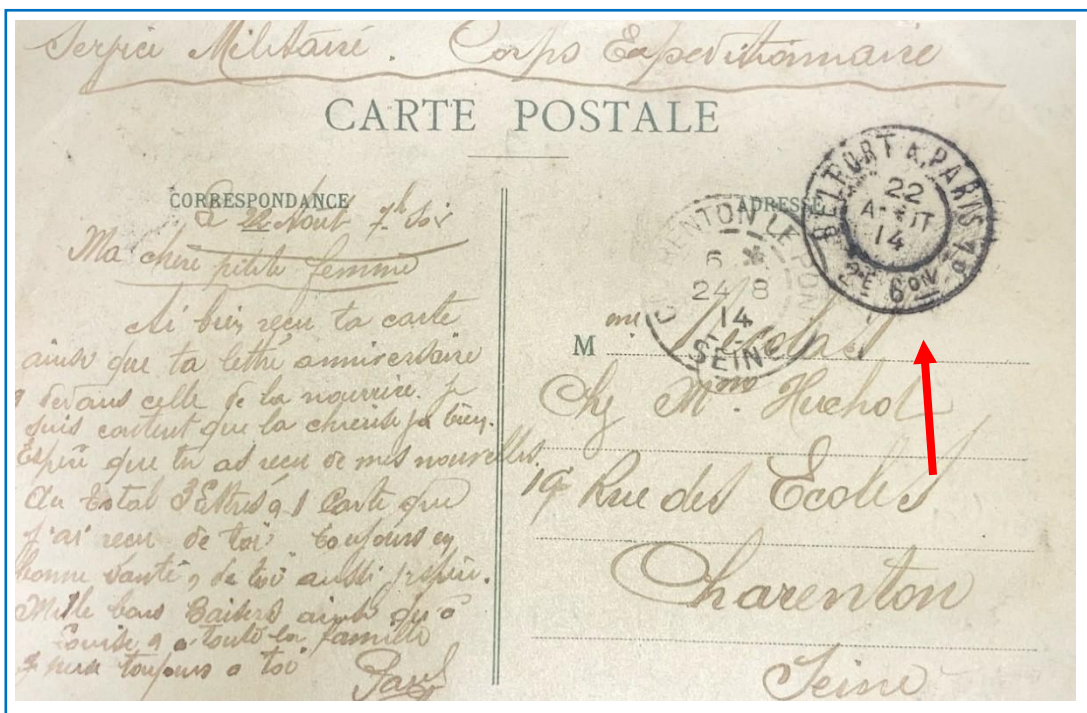 Service Militaire. Corps Expeditionnaire
CARTE POSTALE
CORRESPONDANCE
Le 22 Aout 7h Soir
Ma chère petite femme
Ai bien reçu ta carte
ainsi que ta lettre anniversaire
celle de la nourrice. je
suis content que la cherie va bien.
Espère que tu as reçu de mes nouvelles.
Au total 3 lettres & 1 Carte que
j'ai recu de toi toujours en
bonne santé & de toi aussi j'espère.
Mille bons Baisers ainsi qu'à
Louise & a toute la famille
toujours a toi
Paul
ADRESSE
BELFORT A PARIS 1°
22
AOUT
14
2E 6ON
CHARENTON LE PONT
6 *
24 8
14
SEINE
M me Nicolas
Chez Mme Huchot
19 Rue des Ecoles
Charenton
Seine